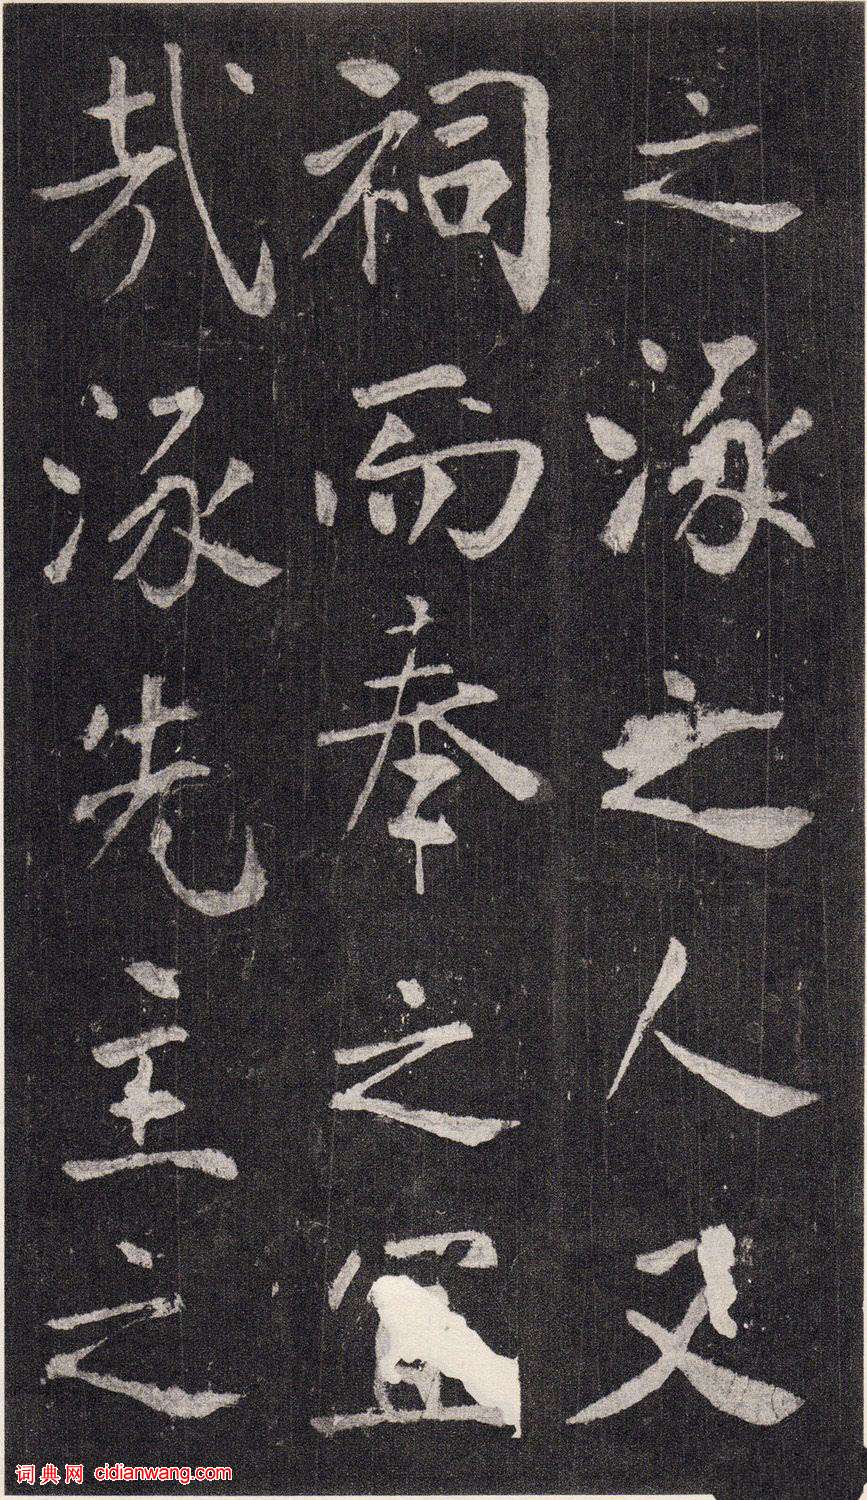 之涿之人又
祠而奉之宜
哉涿先主之
词典网 cidianwang.com